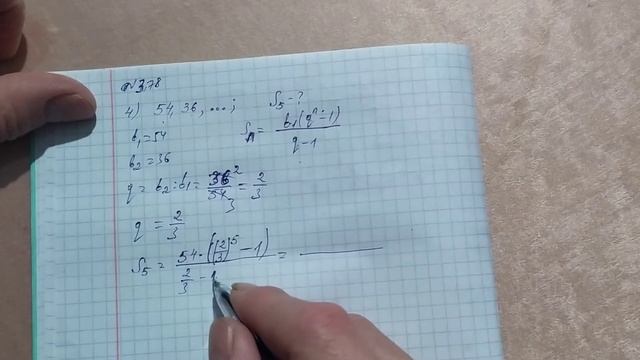 №378
4) 54, 36, ...; S₅ - ?
b₁ = 54 Sₙ = b₁(qⁿ - 1) / q - 1
b₂ = 36
q = b₂ : b₁ = 36/54 ²/₃ = 2/3
q = 2/3
S₅ = 54 · ((2/3)⁵ - 1) / 2/3 - 1 =